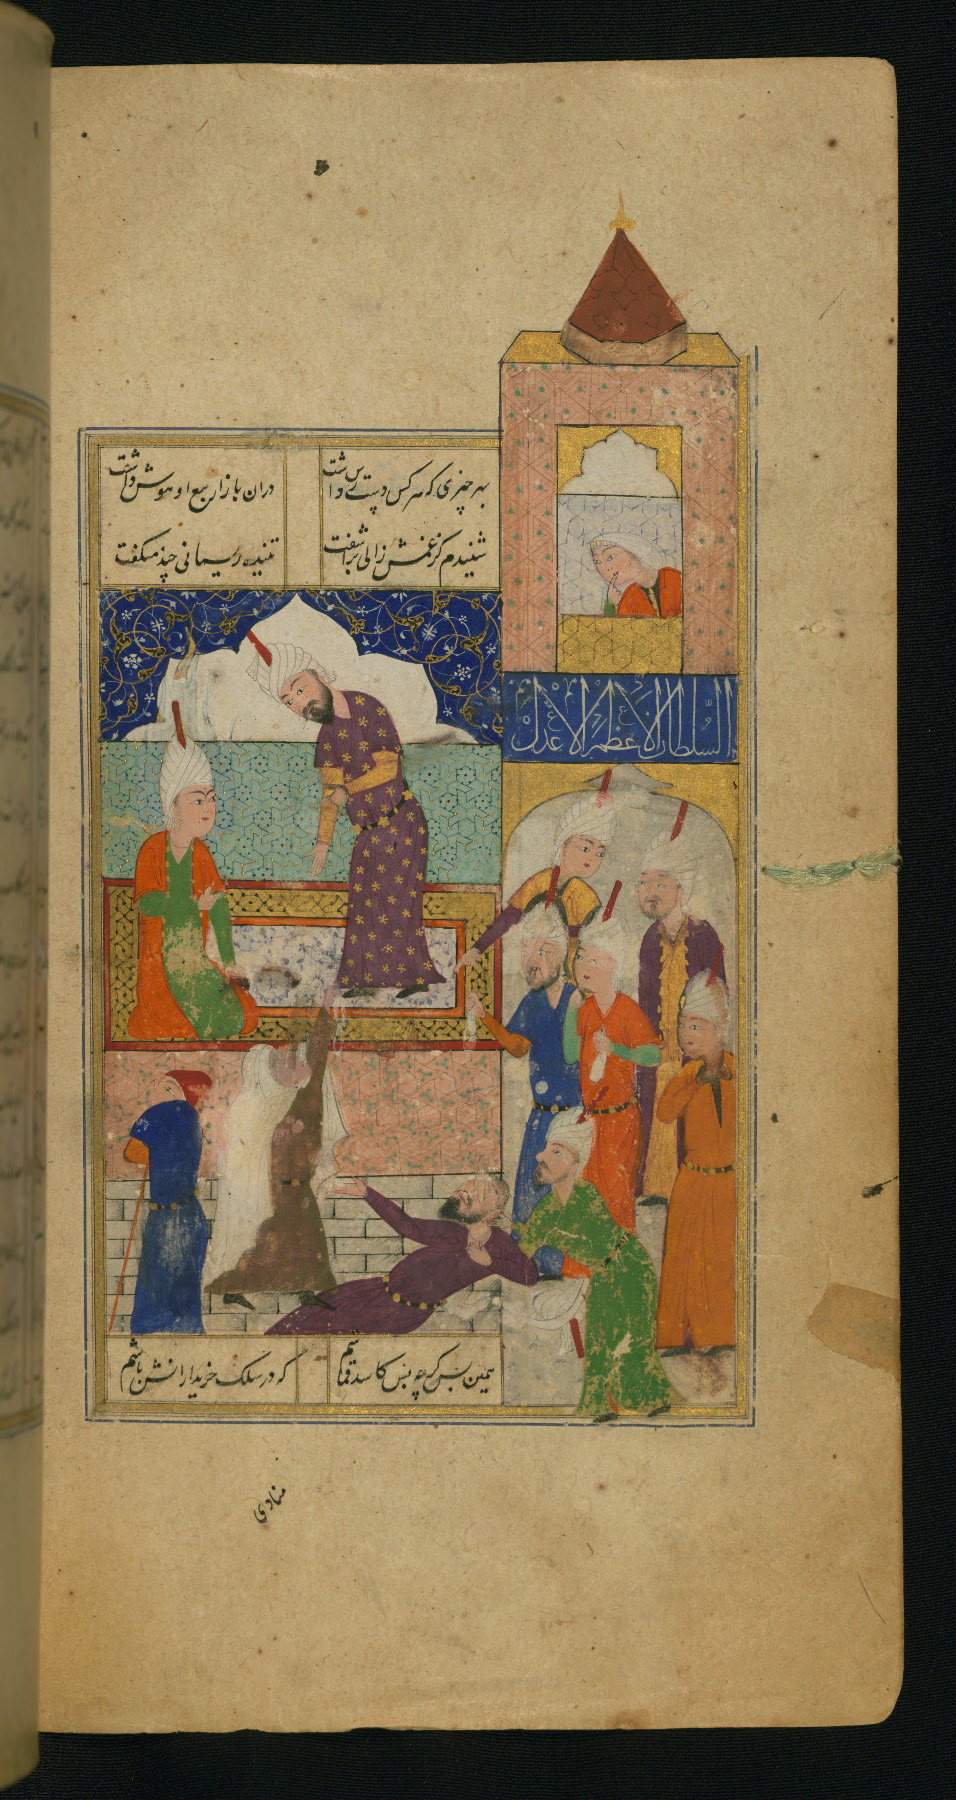 بهر چیزی که هر کس دست رس داشت دران بازار بیع او هوس داشت
شنیدم کز غمش زالی برآشفت تنیده ریسمانی چند میگفت
السلطان الاعظم الاعدل
همین بس گرچه بس کاسد قماشم که در سلک خریدارانش باشم
منادی